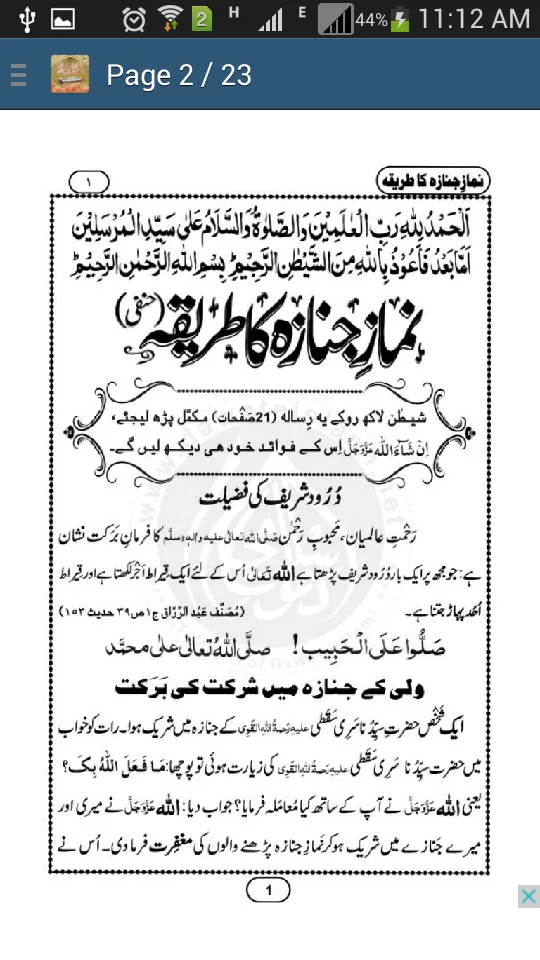 2 H E 44% 11:12 AM
Page 2 / 23
نمازِ جنازہ کا طریقہ
۱
اَلْحَمْدُ لِلّٰہِ رَبِّ الْعٰلَمِیْنَ وَالصَّلٰوۃُ وَالسَّلَامُ عَلٰی سَیِّدِ الْمُرْسَلِیْنَ
اَمَّا بَعْدُ فَاَعُوْذُ بِاللّٰہِ مِنَ الشَّیْطٰنِ الرَّجِیْمِ ؕ بِسْمِ اللّٰہِ الرَّحْمٰنِ الرَّحِیْمِ ؕ
نمازِ جنازہ کا طریقہ (حنفی)
شیطٰن لاکھ روکے یہ رِسالہ (21 صَفْحات) مکمَّل پڑھ لیجئے،
اِنْ شَآءَ اللّٰہ عَزَّوَجَلَّ اِس کے فوائد خود ھی دیکھ لیں گے۔
دُرُود شریف کی فضیلت
رَحْمتِ عالمیان، مَحبوبِ رَحْمٰن صَلَّی اللہُ تَعَالٰی علیہ واٰلہٖ وسلَّم کا فرمانِ بَرَکت نشان
ہے: جو مجھ پر ایک بار دُرُود شریف پڑھتا ہے اللہ تَعَالٰی اُس کے لئے ایک قِیراط اَجْر لکھتا ہے اور قِیراط
اُحُد پہاڑ جتنا ہے۔ (مُصَنَّف عَبْدُ الرَّزّاق ج۱ ص۳۹ حدیث ۱۵۳)
صَلُّوْا عَلَی الْحَبِیْب! صلَّی اللہُ تعالٰی علٰی محمَّد
ولی کے جنازہ میں شرکت کی بَرَکت
ایک شَخْص حضرتِ سیِّدُنا سَرِی سَقَطی علیہ رَحمۃُ اللہِ القوی کے جنازہ میں شریک ہوا۔ رات کو خواب
میں حضرت سیِّدُنا سَرِی سَقَطی علیہ رَحمۃُ اللہِ القوی کی زیارت ہوئی تو پوچھا: مَا فَعَلَ اللّٰہُ بِکَ؟
یعنی اللہ عَزَّوَجَلَّ نے آپ کے ساتھ کیا مُعامَلہ فرمایا؟ جواب دیا: اللہ عَزَّوَجَلَّ نے میری اور
میرے جَنازے میں شریک ہو کر نَمازِ جنازہ پڑھنے والوں کی مغفِرت فرما دی۔ اُس نے
1